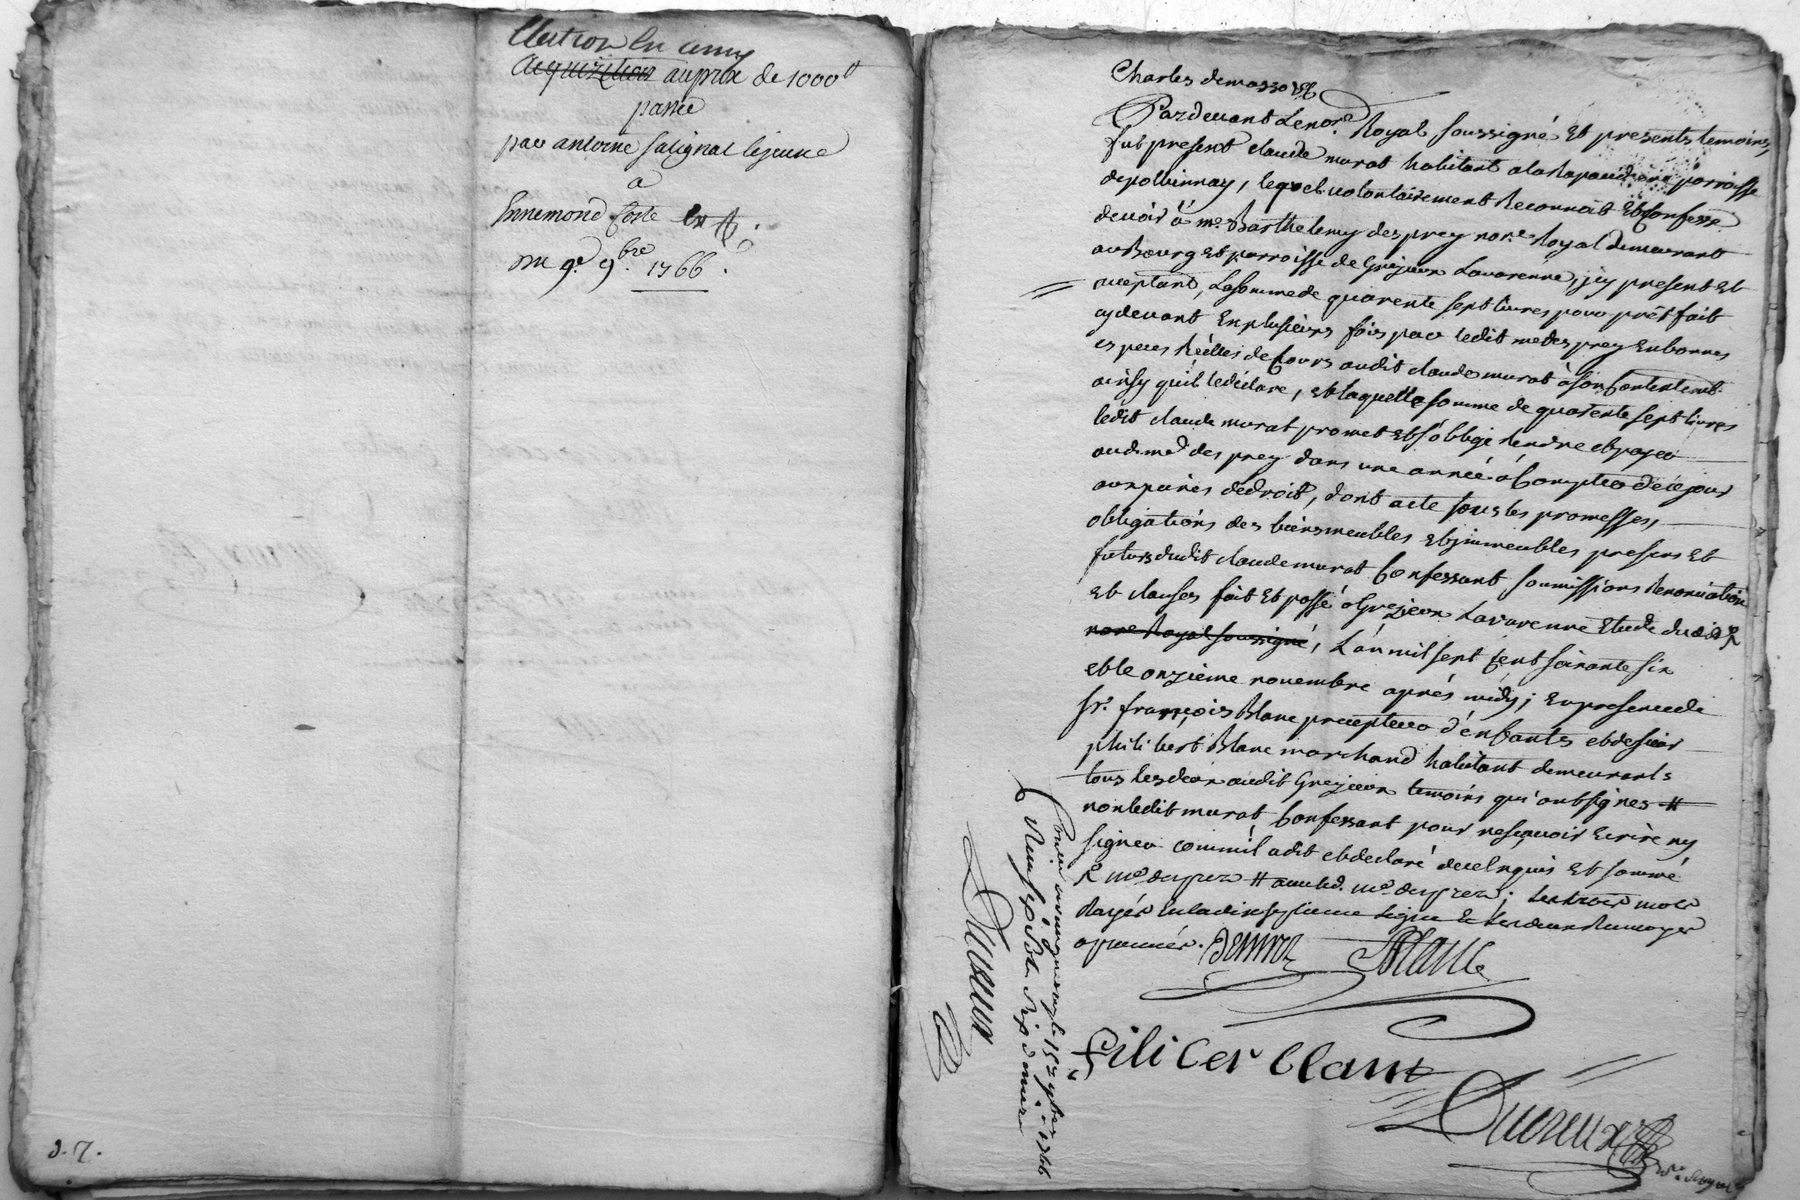 Election en amy
acquizition au prix de 1000lt
passée
par antoine salignat lejeune
a
Ennemond Coste
Du 9e. 9bre. 1766.
3. 7.
Charles demasso
Pardevant Le nore. Royal soussigné Et presents temoins,
fut present claude murat habitant a la Rapaudiere parroisse
de pollionnay, lequel volontairement Reconnoit Et Confesse
devoir à me. Barthelemy des prey nore. Royal Demeurant
au Bourg Et parroisse de Grezieux Lavarenne, jcy present Et
acceptant, La somme de quarente sept livres pour prêt fait
cydevant En plusieurs fois par ledit me des prey En bonnes
especes Réelles de Cours audit claude murat à son Contentemt.
ainsy qu'il le déclare, Et laquelle somme de quarente sept livres
ledit claude murat promet Et s'oblige Rendre et payer
audit me des prey dans une année à Compter de ce jour
aux peines de droit, dont acte sous les promesses,
obligations des biens meubles Et jmmeubles presens Et
futurs dudit claude murat Confessant soumissions Renonciations
Et clauses fait Et passé à Grezieux Lavarenne Etude dudit
nore Royal soussigné, L'an mil sept Cent soixante six
et le onzieme novembre après midy; En presence de
sr. françois Blanc precepteur d'enfants et de sieur
philibert Blanc marchand habitant demeurants
tous les deux audit Grezieux temoins qui ont signés #
non ledit murat Confessant pour ne sçavoir Ecrire ny
signer comm'il a dit et declaré de ce Enquis Et sommé
me duprez # avec led. me duprez; les trois mots
Rayés en la dixseptieme ligne & les deux Renvoyes
aprouvés. Blanc
filiber blanc
Ducreux
Controllé a vaugneray le 15 9bre 1766
Reçu
Ducreux